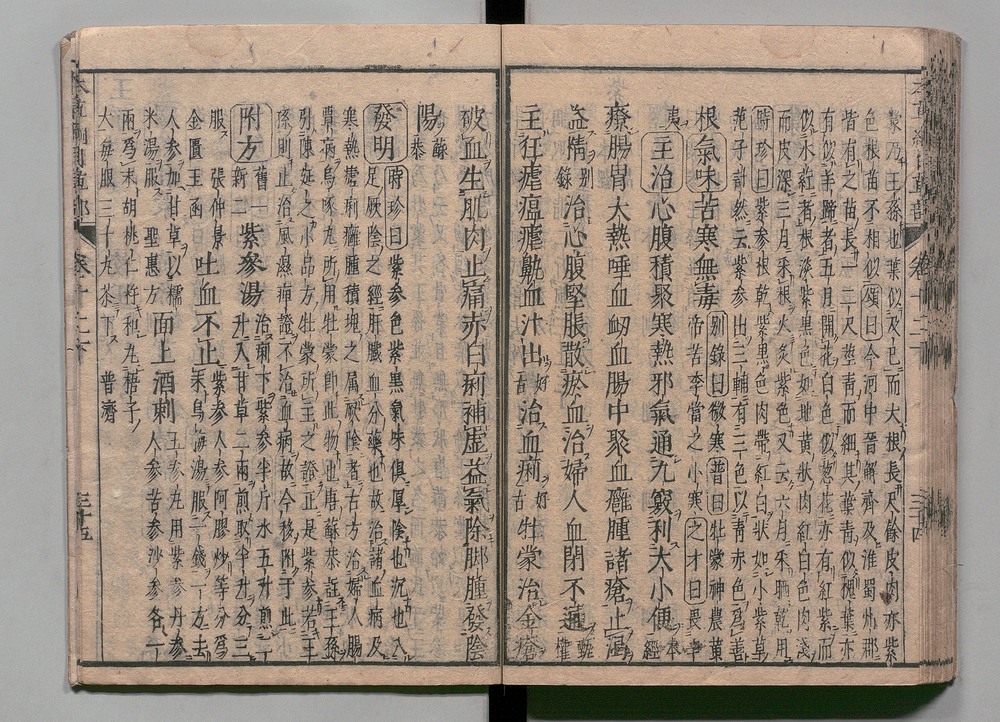 蒙乃王孫也葉似及已而大根長尺餘皮肉亦紫
色根苗不相似頌曰今河中晉解齊及淮蜀州郡
皆有之苗長一二尺莖青而細其葉青似槐葉亦
有似羊蹄者五月開花白色似葱花亦有紅紫而
似水紅者根淡紫黑色如地黄狀肉紅白色肉淺
而皮深三月采根火炙紫色又云六月采晒乾用
時珍曰紫參根乾紫黑色肉帶紅白狀如小紫草
范子計然云紫參出三輔有三色以青赤色爲善
根氣味苦寒無毒別錄曰微寒普曰牡蒙神農黄
帝苦李當之小寒之才曰畏辛
夷主治心腹積聚寒熱邪氣通九竅利大小便本
經
療腸胃大熱唾血衂血腸中聚血癰腫諸瘡止渴
益精別錄治心腹堅脹散瘀血治婦人血閉不通甄
權
主狂瘧瘟瘧鼽血汁出好古治血痢好古牡蒙治金瘡
破血生肌肉止痛赤白痢補虚益氣除脚腫發陰
陽蘇恭
發明時珍曰紫參色紫黑氣味俱厚陰也沉也入
足厥陰之經肝臟血分藥也故治諸血病及
寒熱瘧痢癰腫積塊之属厥陰者古方治婦人腸
覃病烏啄丸所用牡蒙即此物也唐蘇恭註王孫
引陳延之小品方牡蒙所主之證正是紫參若王
孫則止治風濕痺證不治血病故今移附于此
附方舊一新二紫參湯治痢下紫參半斤水五升煎二
升入甘草二兩煎取半升分三
服張仲景金匱玉函吐血不止紫參人參阿膠炒等分爲
末烏梅湯服一錢一方去
人參加甘草以糯
米湯服聖惠方面上酒刺五參丸用紫參丹參
人參苦參沙參各一
兩爲末胡桃仁杵和丸梧子
大每服三十丸茶下普濟
卷十二
三十四
卷十二下
三十五